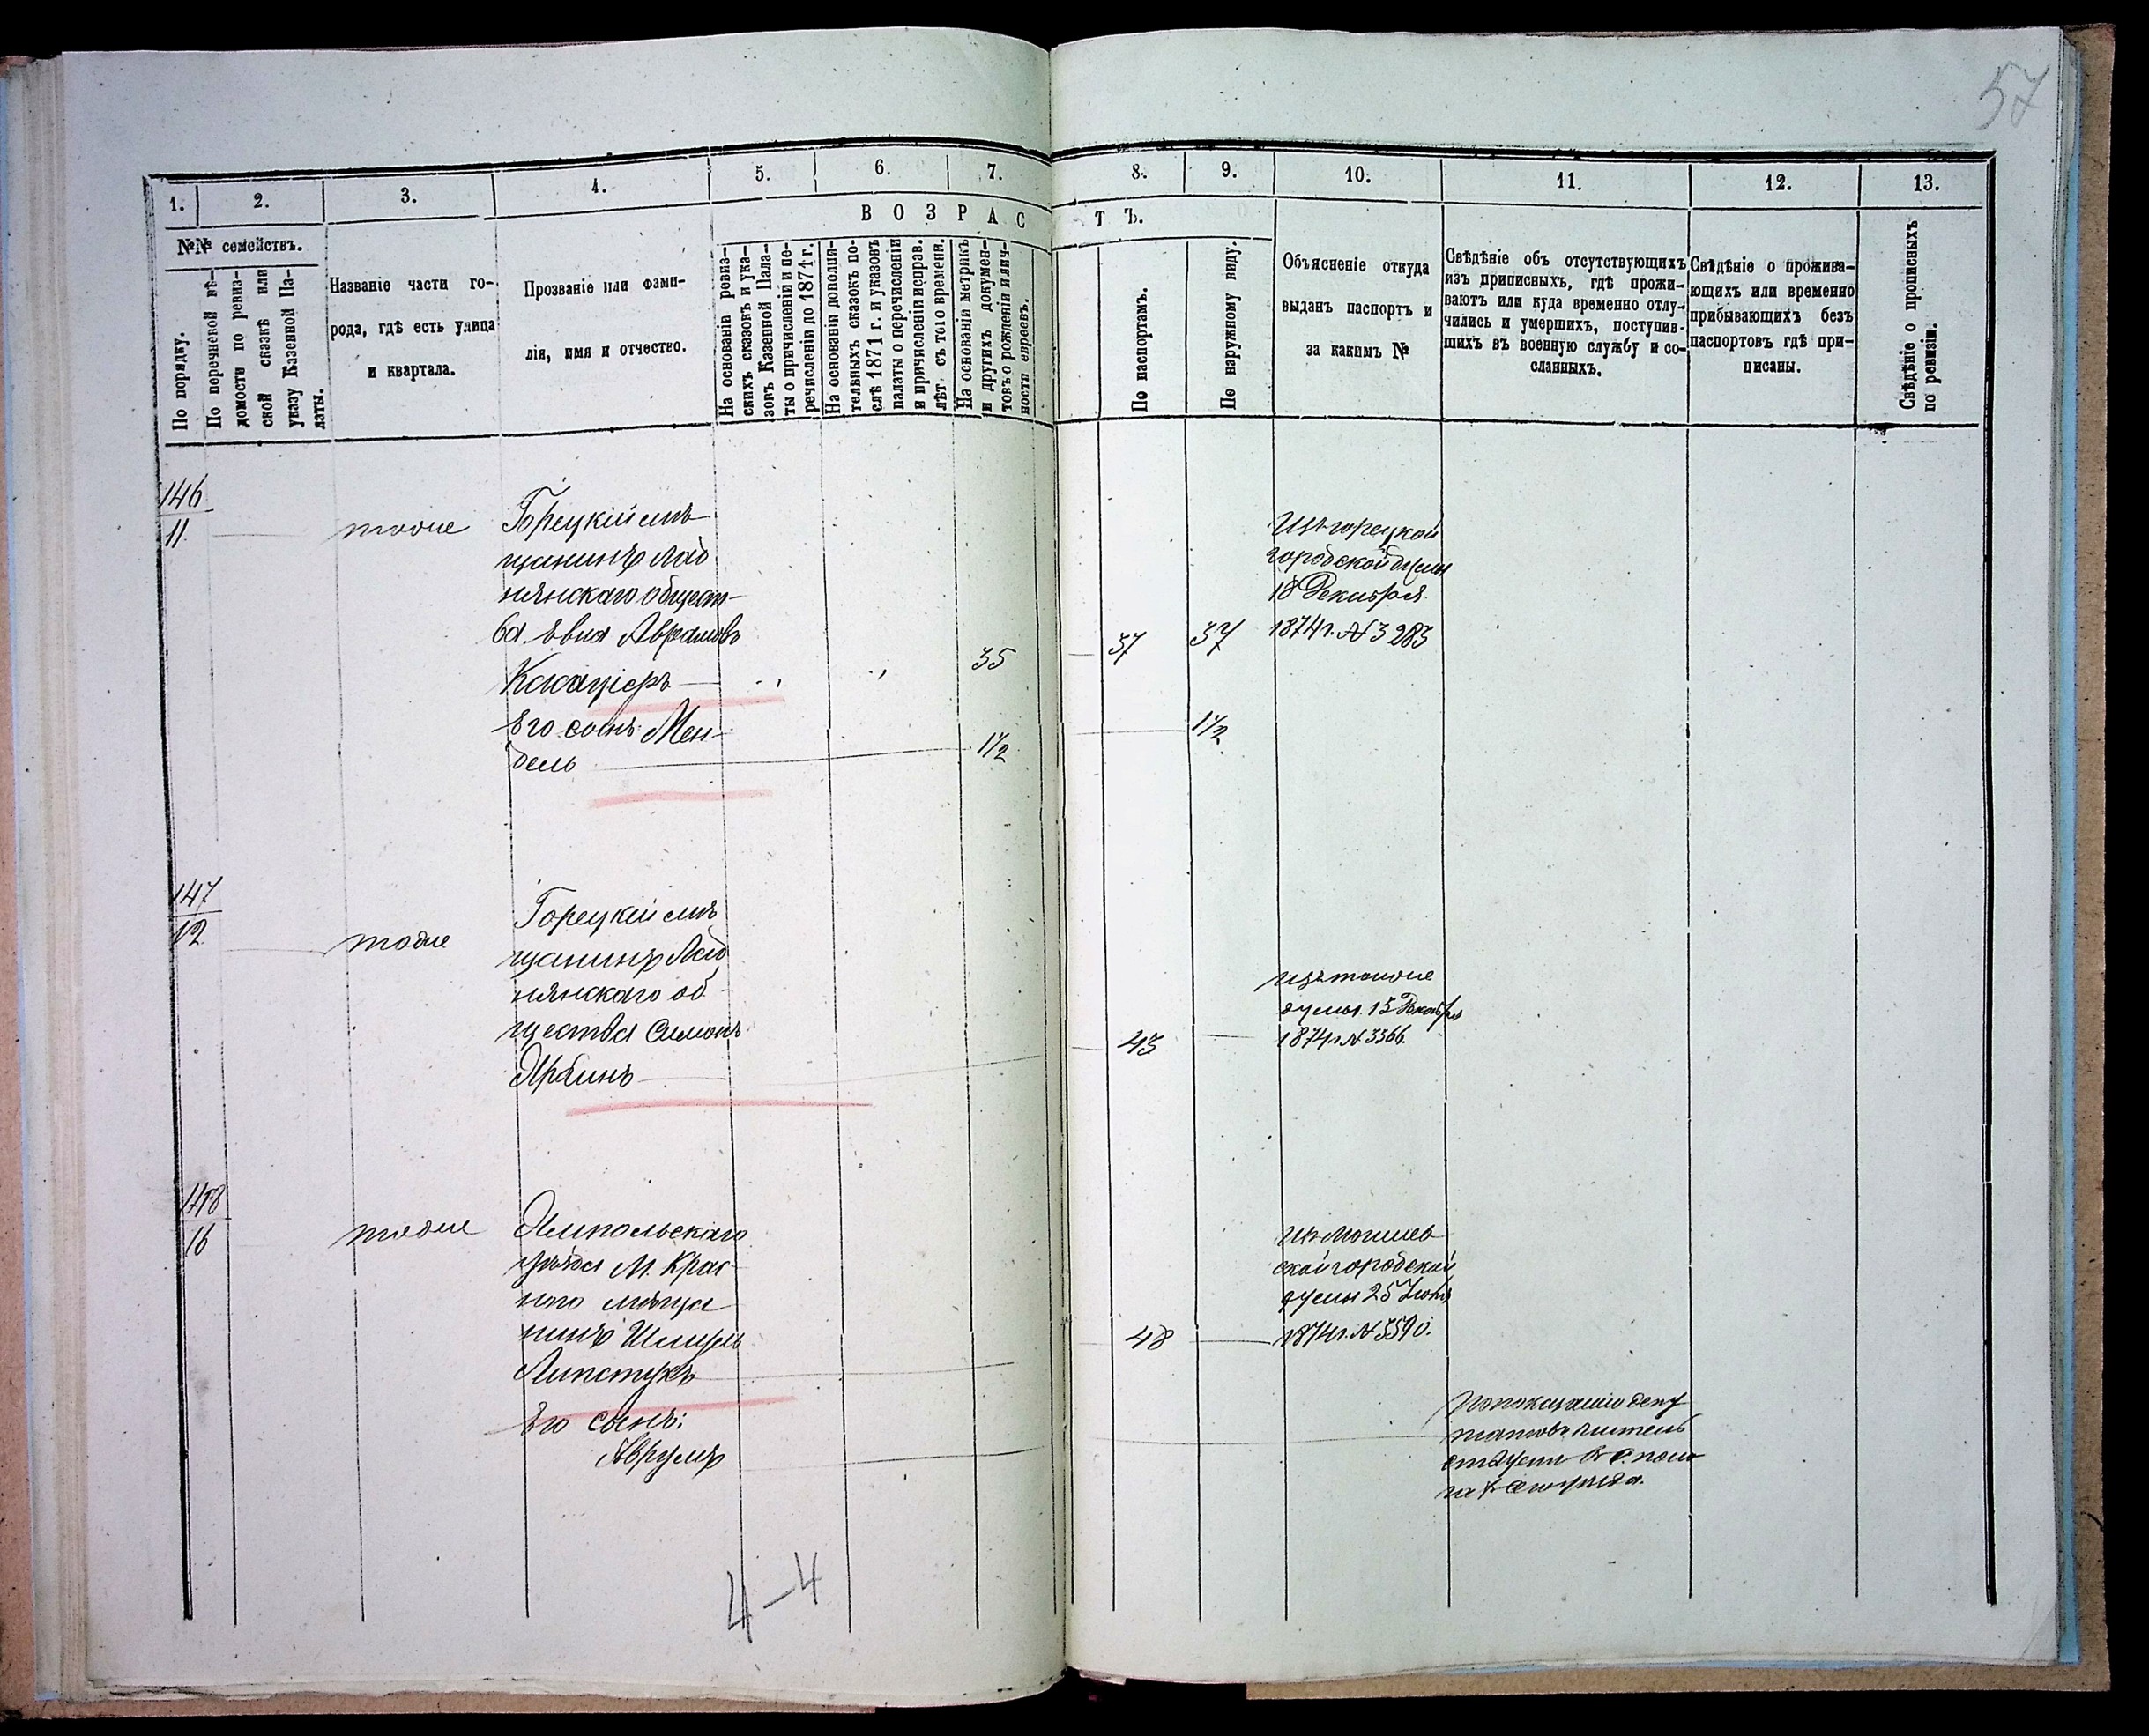 57
1.
2.
3.
4.
5.
6.
7.
8.
9.
10.
11.
12.
13.
ВОЗРАСТЪ.
№№ семействъ.
По порядку.
По перечневой вѣ-
домости по ревиз-
ской сказкѣ или
указу Казенной Па-
латы.
Названіе части го-
рода, гдѣ есть улица
и квартала.
Прозваніе или фами-
лія, имя и отчество.
На основаніи ревиз-
скихъ сказокъ и ука-
зовъ Казенной Пала-
ты о причисленіи и пе-
речисленіи до 1871 г.
На основаніи дополни-
тельныхъ сказокъ по-
слѣ 1871 г. и указовъ
палаты о перечисленіи
и причисленіи исправ.
лѣт. съ того времени.
На основаніи метрикъ
и другихъ докумен-
товъ о рожденіи и лич-
ности евреевъ.
По паспортамъ.
По наружному виду.
Объясненіе откуда
выданъ паспортъ и
за какимъ №
Свѣдѣніе объ отсутствующихъ
изъ приписныхъ, гдѣ прожи-
ваютъ или куда временно отлу-
чились и умершихъ, поступив-
шихъ въ военную службу и со-
сланныхъ.
Свѣдѣніе о прожива-
ющихъ или временно
прибывающихъ безъ
паспортовъ гдѣ при-
писаны.
Свѣдѣніе о прописныхъ
по ревизіи.
146
11
тоже
Горецкій мѣ-
щанинъ Лад
нянскаго общест-
ва Евна Аврамовъ
35
37
37
Изъ горецкой
городской думы
18 Декабря
1874 г. № 3283
Его сынъ Мен-
дель
1½
1½
147
12
тоже
Горецкій мѣ
щанинъ Лад
нянскаго об-
щества Симонъ
43
изъ тойже
думы 15 Декабря
1874 г. № 3366.
148
16
тоже
Ямпольскаго
уѣзда М. Крас-
ного мѣща
нинъ Шмуль
Липстукъ
48
Изъ Могилев
ской городской
думы 25 Іюня
1874 г. № 5590.
Его сынъ:
Аврумъ
По показанію депу
татовъ жительствуетъ
4-4